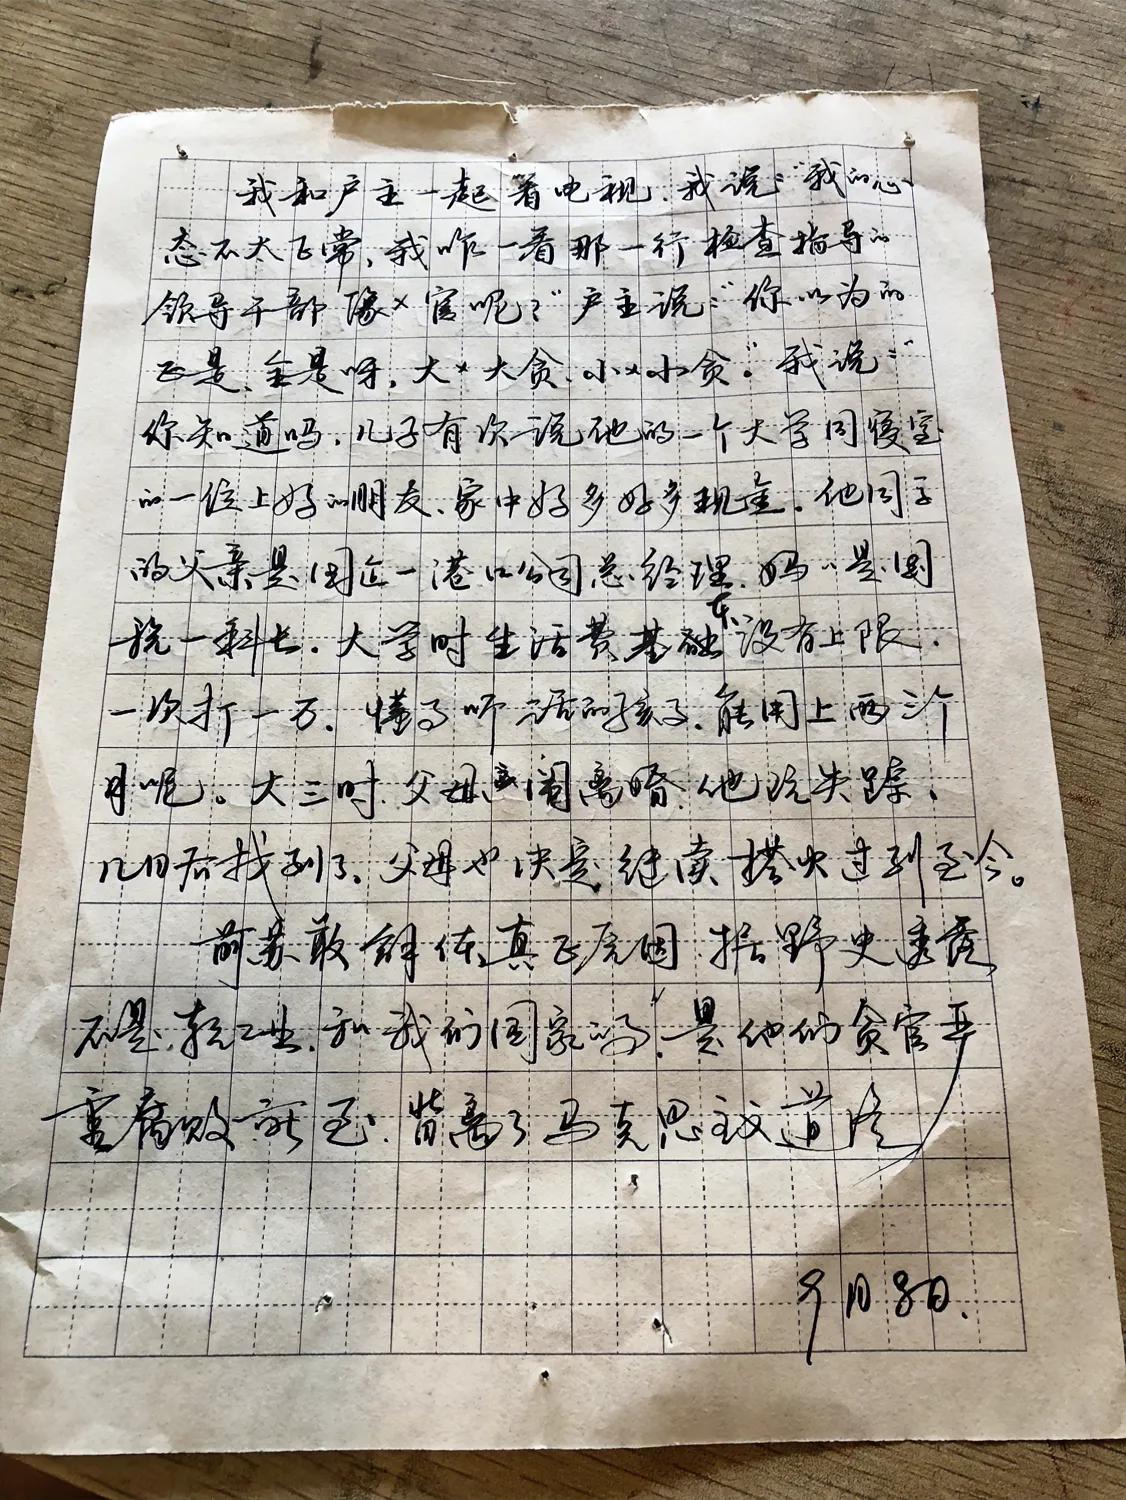 我和户主一起看电视，我说：“我的心
态不大正常，我咋一看那一行检查指导的
领导干部像×官呢？”户主说：“你以为的
正是，全是呀，大×大贪，小×小贪。”我说：“
你知道吗，儿子有次说他的一个大学同寝室
的一位上好的朋友，家中好多好多现金。他同学
的父亲是国企一港口公司总经理，妈妈是国
税一科长。大学时生活费基础在，没有上限，
一次打一万，懂事听话的孩子，能用上两三个
月呢。大三时，父母闹离婚，他玩失踪，
几日后找到了，父母也决定继续搭伙过到至今。
前苏联解体真正原因，据野史透露
不是轻工业，和我们国家吗，是他们贪官严
重腐败所至，背离了马克思主义道路
9月8日.